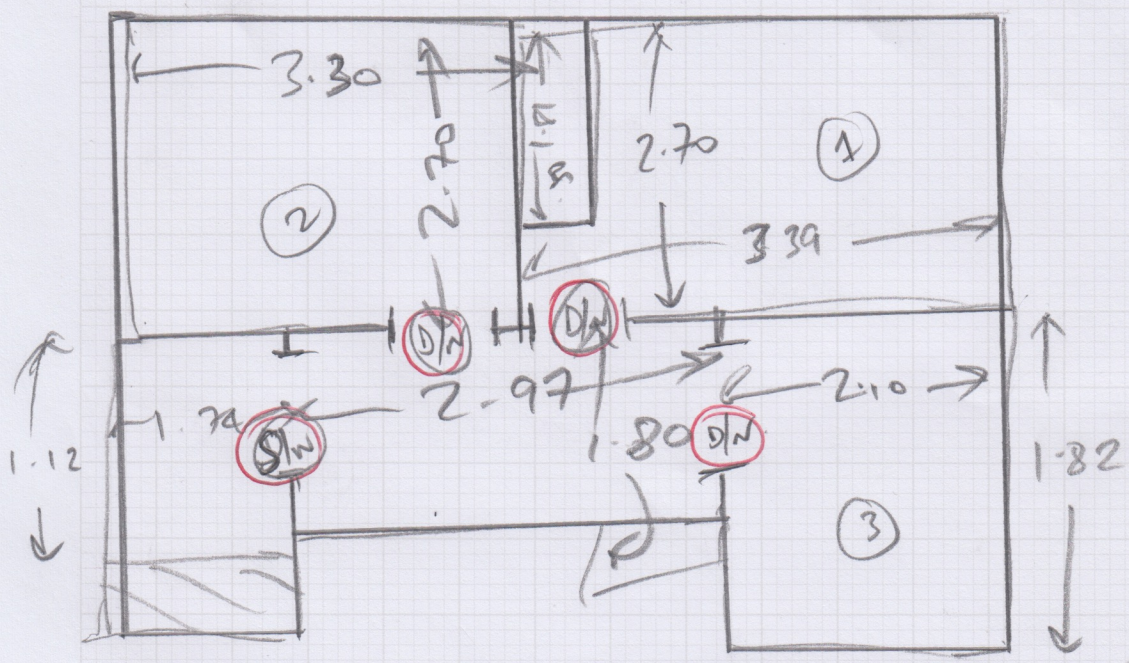 3.30
2.70
2.70
1
2
3.39
D/W
D/W
2.97
2.10
1.74
D/W
1.80
D/W
1.12
1.82
3